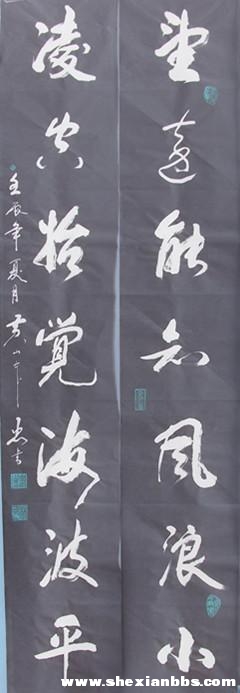 望遠能知風浪小
凌空始覺海波平
壬辰年夏月黄山
www.shexianbbs.com